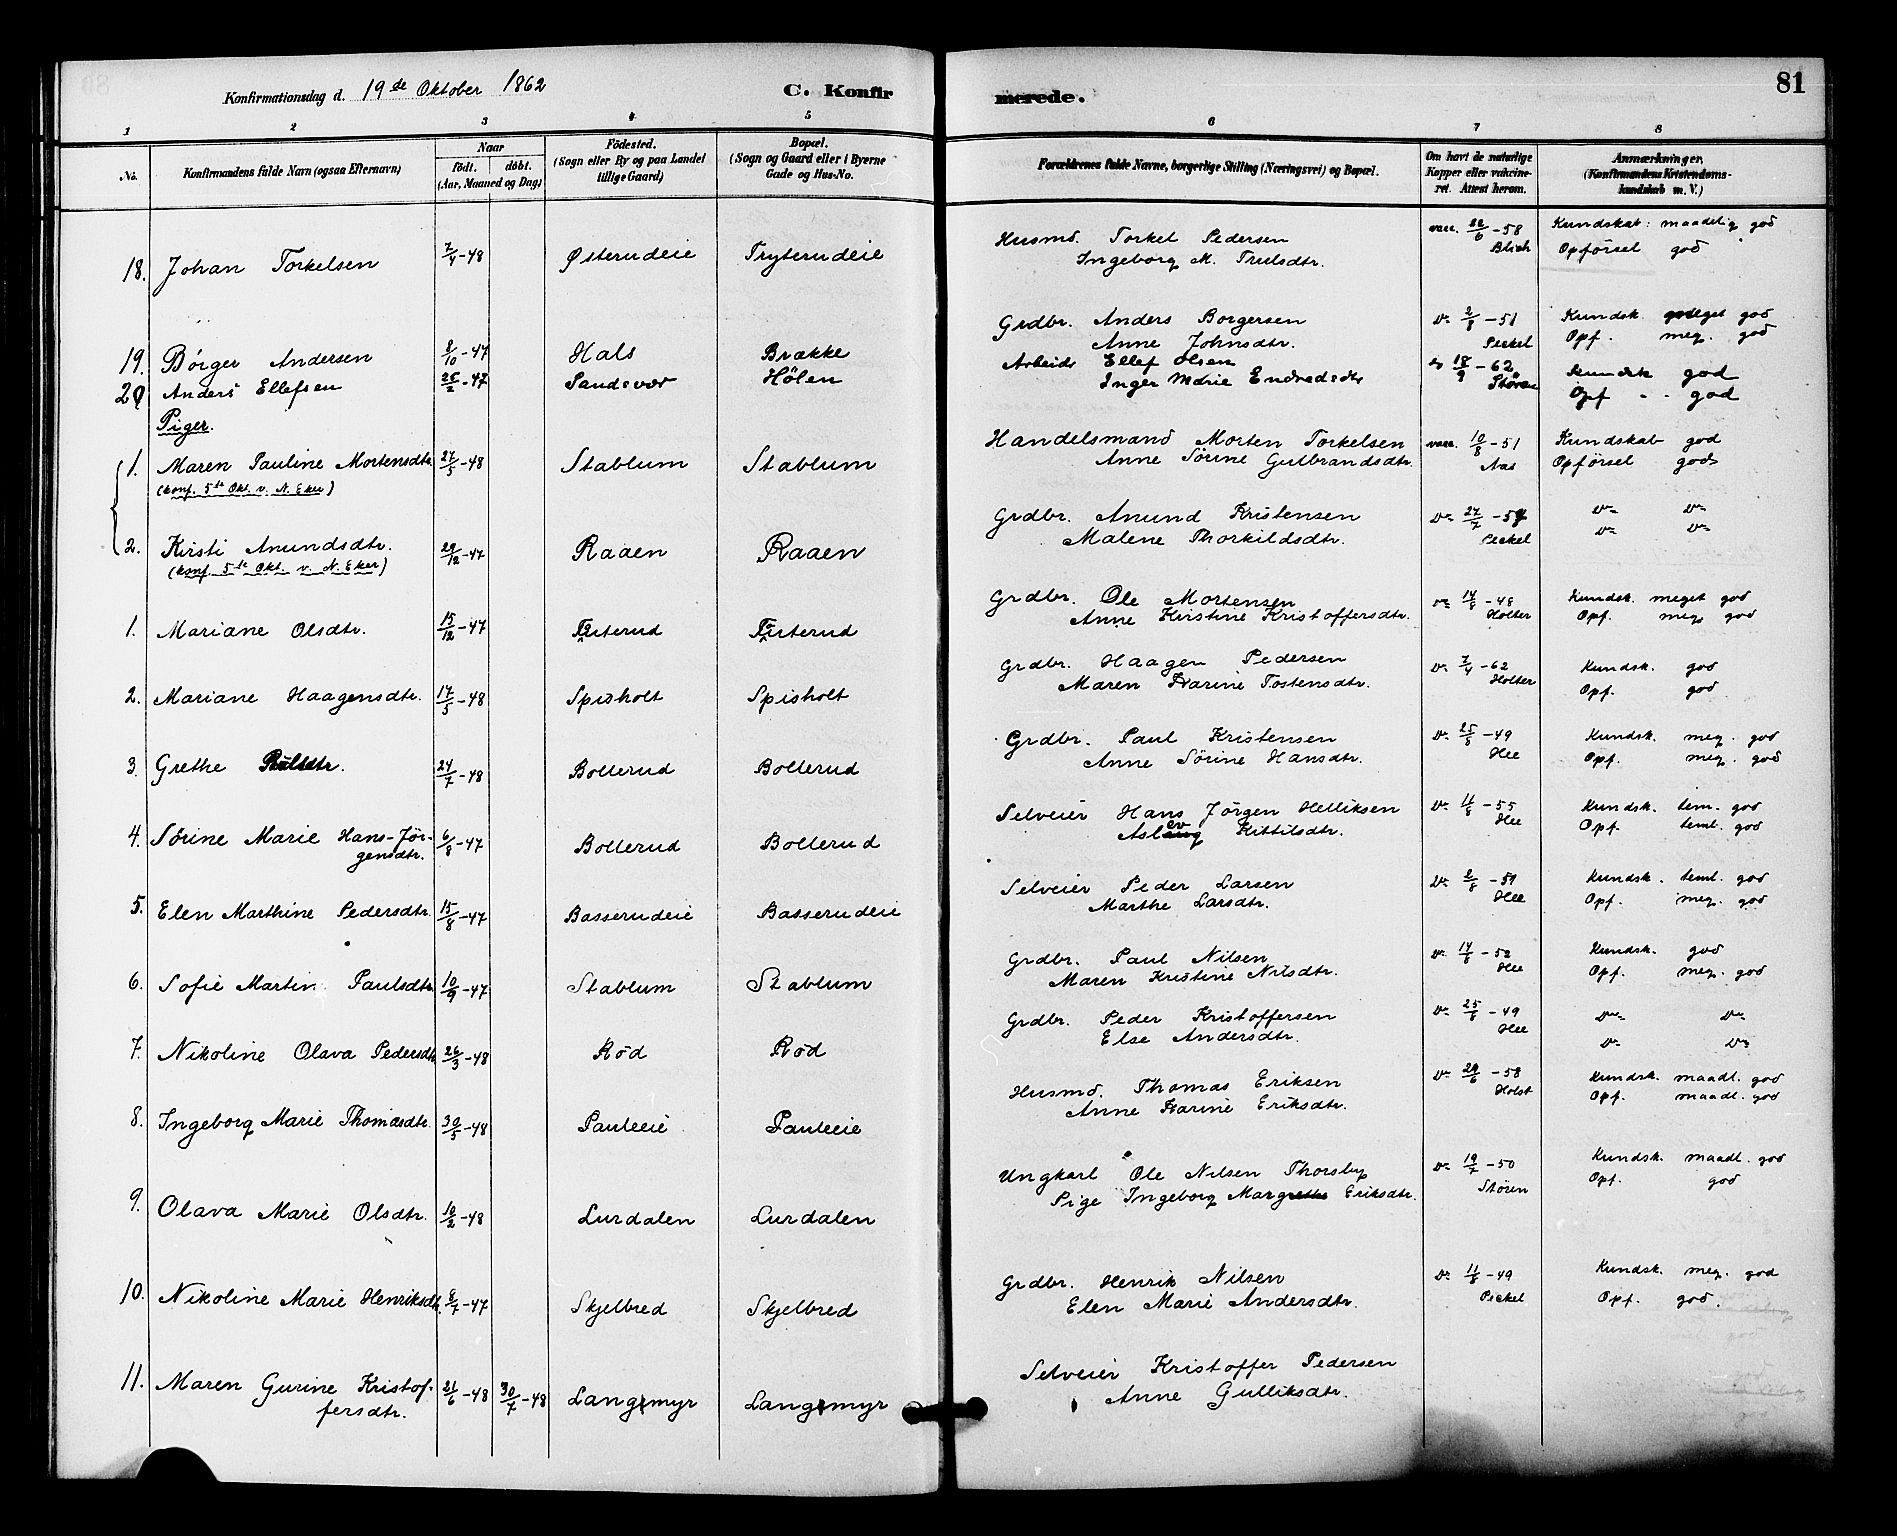 81
Konfirmationsdag d. 19de Oktober 1862 C. Konfirmerede.
1 2 3 4 5 6 7 8
No. Konfirmandens fulde Navn (ogsaa Efternavn) Naar født. døbt. (Aar, Maaned og Dag) Fødested. (Sogn eller By og paa Landet tillige Gaard) Bopæl. (Sogn og Gaard eller i Byerne Gade og Hus-No. Forældrenes fulde Navne, borgerlige Stilling (Næringsvei) og Bopæl. Om havt de naturlige Kopper eller vaccineret. Attest herom. Anmærkninger. (Konfirmandens Kristendomskundskab m. V.)
18. Johan Torkelsen 7/4-48 Østerudeie Tryterudeie Husmd. Torkel Pedersen vacc. 22/6-58 Kundskab: maadelig god
Ingeborg M. Trulsdtr. Blich Opførsel god
19. Børger Andersen 8/10-47 Hals Brække Grdbr. Anders Borgersen do 2/8-51 Kundsk. meget god
Anne Johnsdtr. Peckel Opf. meg. god
20 Anders Ellefsen 25/2-47 Sandsvær Hølen Arbeids Ellef Olsen do 18/9-62 Kundsk god
Inger Marie Endredsdtr Støren Opf - - god
Piger.
1. Maren Pauline Mortensdtr. 27/5-48 Stablum Stablum Handelsmand Morten Torkelsen vacc. 10/8-51 Kundskab god
(konf. 5te Okt. v. N. Eker) Anne Sørine Gulbrandsdtr. Aas Opførsel god
2. Kirsti Anundsdtr. 29/12-47 Raaen Raaen Grdbr. Anund Kristensen do 27/7-57 do do
(konf. 5te Okt. v. N. Eker) Malene Thorkildsdtr. Peckel do do
1. Mariane Olsdtr. 15/12-47 Grdbr. Ole Mortensen do 14/8-48 Kundsk. meget god
Anne Kirstine Kristoffersdtr. Holter Opf. meg god
2. Mariane Haagensdtr. 17/5-48 Spisholt Spisholt Grdbr. Haagen Pedersen do 7/4-62 Kundsk. god
Maren Karine Tostensdtr. Holter Opf. god
3. Grethe Paulsdtr. 24/7-48 Bollerud Bollerud Grdbr. Paul Kristensen do 25/8-49 Kundsk. meg. god
Anne Sørine Hansdtr. Hee Opf. meg. god
4. Sørine Marie Hans-Jør- 6/8-47 Bollerud Bollerud Selveier Hans Jørgen Helliksen do 11/8-55 Kundsk. tem. god
gensdtr. Aslev Kittilsdtr. Hee Opf. teml. god
5. Elen Marthine Pedersdtr. 15/8-47 Basserudeie Basserudeie Selveier Peder Larsen do 2/8-51 Kundsk. teml. god
Marthe Larsdtr. Hee Opf. meg. god
6. Sofie Martin Paulsdtr 10/9-47 Stablum Stablum Grdbr. Paul Nilsen do 14/8-52 Kundsk. god
Maren Kristine Nilsdtr. Hee Opf. meg. god
7. Nikoline Olava Pedersdtr 26/3-48 Rød Rød Grdbr. Peder Kristoffersen do 25/8-49 do do
Else Andersdtr. Hee do do
8. Ingeborg Marie Thomasdtr. 30/5-48 Pauleeie Pauleeie Husmd. Thomas Eriksen do 29/6-58 Kundsk. maadl. god
Anne Karine Eriksdtr. Holst Opf. maadl. god
9. Olava Marie Olsdtr. 10/2-48 Lurdalen Lurdalen Ungkarl Ole Nilsen Thorsby do 19/7-50 Kundsk. maadl. god
Pige Ingeborg Margrethe Eriksdtr. Støren Opf. god
10. Nikoline Marie Henriksdtr. 8/7-47 Skjelbred Skjelbred Grdbr. Henrik Nilsen do 11/8-49 Kundsk. meg. god
Elen Marie Andersdtr. Peckel Opf. god.
11. Maren Gurine Kristof- 21/6-48 30/7-48 Langmyr Langmyr Selveier Kristoffer Pedersen
fersdtr. Anne Gulliksdtr.